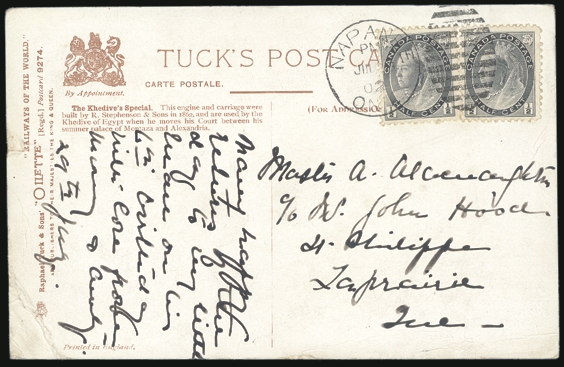 TUCK'S POST CARD
CARTE POSTALE.
By Appointment.
The Khedive's Special. This engine and carriage were
built by R. Stephenson & Sons in 1862, and are used by the
Khedive of Egypt when he moves his Court between his
summer palace of Montaza and Alexandria.
(FOR ADDRESS O
"RAILWAYS OF THE WORLD."
"OILETTE" [Regd.] Postcard 9274.
Raphael Tuck & Sons'
ART PUBLISHERS TO THEIR MAJESTIES THE KING & QUEEN.
Printed in England.
NAPAN
PM
ONT
CANADA POSTAGE
HALF CENT
CANADA POSTAGE
HALF CENT
Many happy
returns of the
day to my little
on his
birthday
with love from
& Aunty
29th
Master A.
c/o W. John Hood
St Philippe
Laprairie
Que